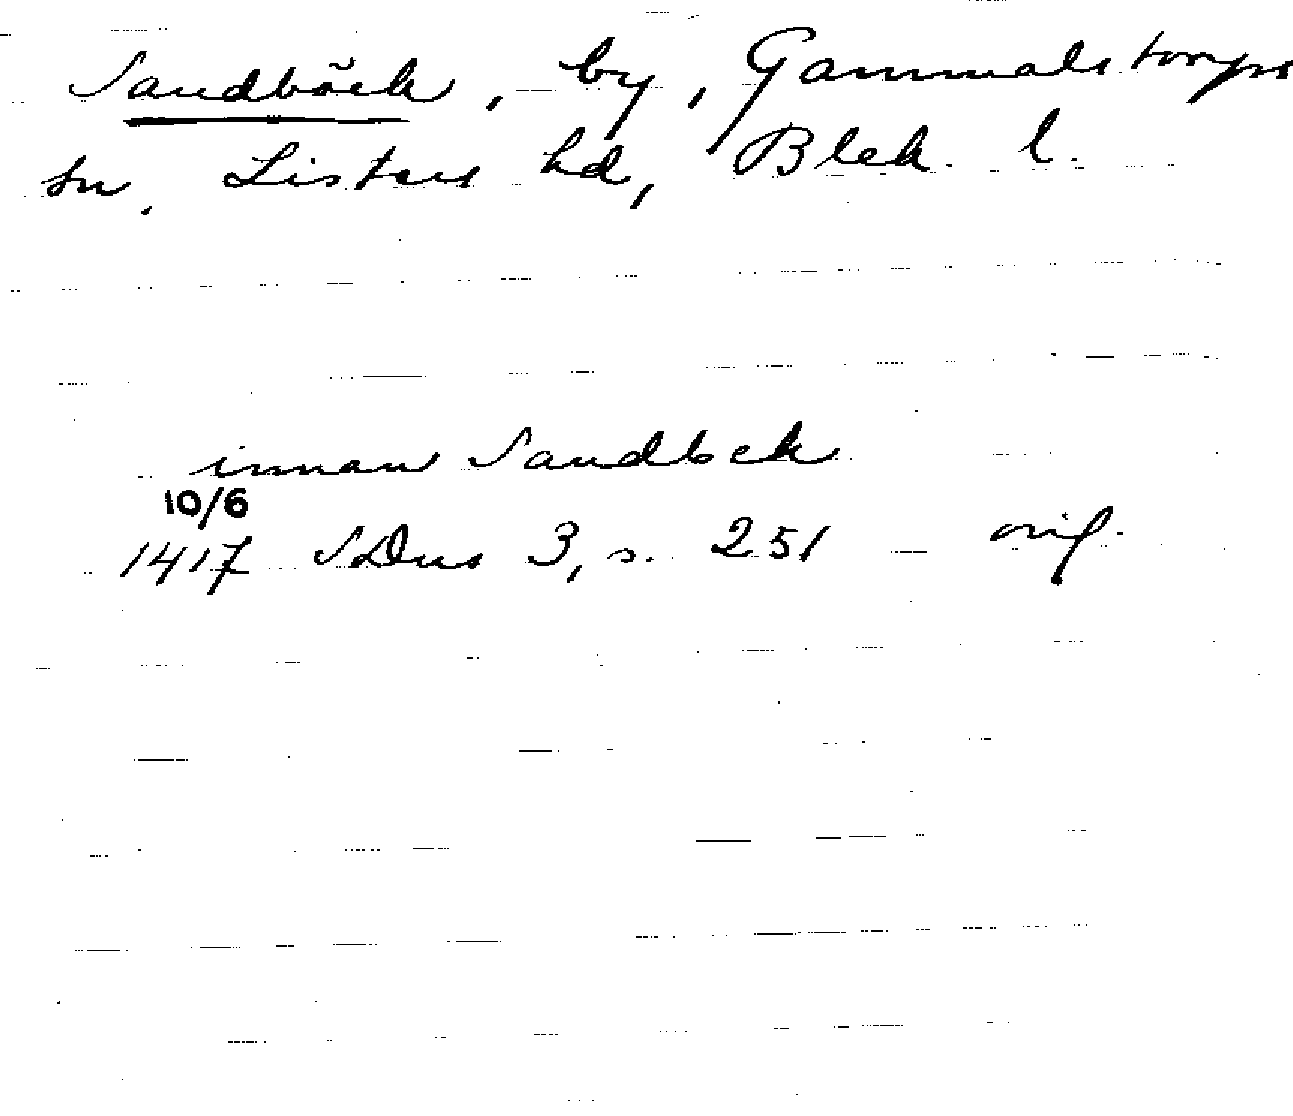 Sandbäck, by, Gammalstorps
sn. Listers hd, Blek. l.
innan Sandbek
10/6
1417 SDns 3, s. 251 orig.